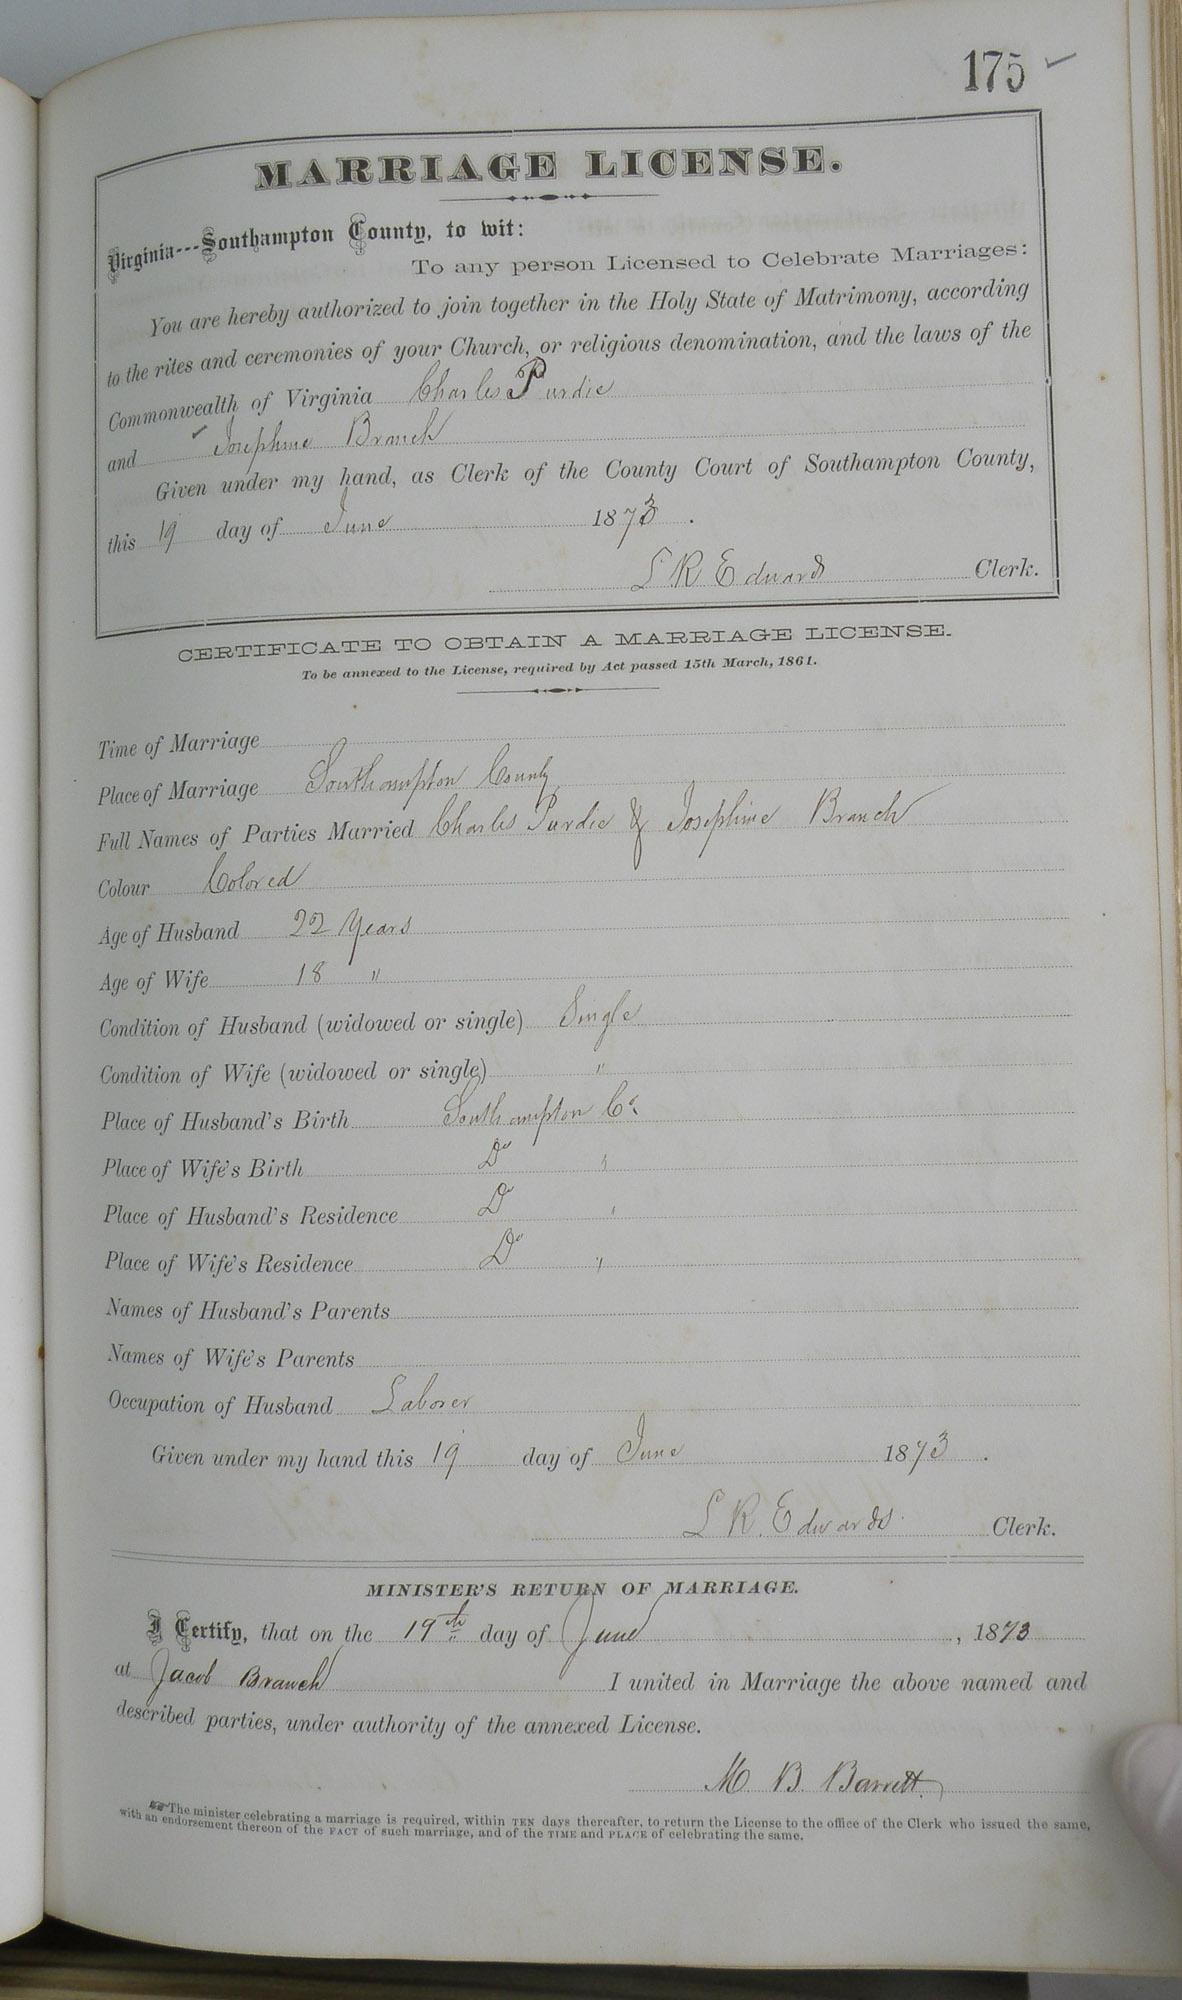 175 ✓
MARRIAGE LICENSE.
Virginia---Southampton County, to wit:
To any person Licensed to Celebrate Marriages:
You are hereby authorized to join together in the Holy State of Matrimony, according
to the rites and ceremonies of your Church, or religious denomination, and the laws of the
Commonwealth of Virginia Charles Purdie
and Josephine Branch
Given under my hand, as Clerk of the County Court of Southampton County,
this 19 day of June 1873.
L R Edwards Clerk.
CERTIFICATE TO OBTAIN A MARRIAGE LICENSE.
To be annexed to the License, required by Act passed 15th March, 1861.
Time of Marriage
Place of Marriage Southampton County
Full Names of Parties Married Charles Purdie & Josephine Branch
Colour Colored
Age of Husband 22 Years
Age of Wife 18 "
Condition of Husband (widowed or single) Single
Condition of Wife (widowed or single) "
Place of Husband's Birth Southampton Co.
Place of Wife's Birth Do "
Place of Husband's Residence Do "
Place of Wife's Residence Do "
Names of Husband's Parents
Names of Wife's Parents
Occupation of Husband Laborer
Given under my hand this 19 day of June 1873.
L R. Edwards Clerk.
MINISTER'S RETURN OF MARRIAGE.
I Certify, that on the 19th day of June, 1873
at Jacob Branch I united in Marriage the above named and
described parties, under authority of the annexed License.
M B Barrett
The minister celebrating a marriage is required, within TEN days thereafter, to return the License to the office of the Clerk who issued the same,
with an endorsement thereon of the FACT of such marriage, and of the TIME and PLACE of celebrating the same.